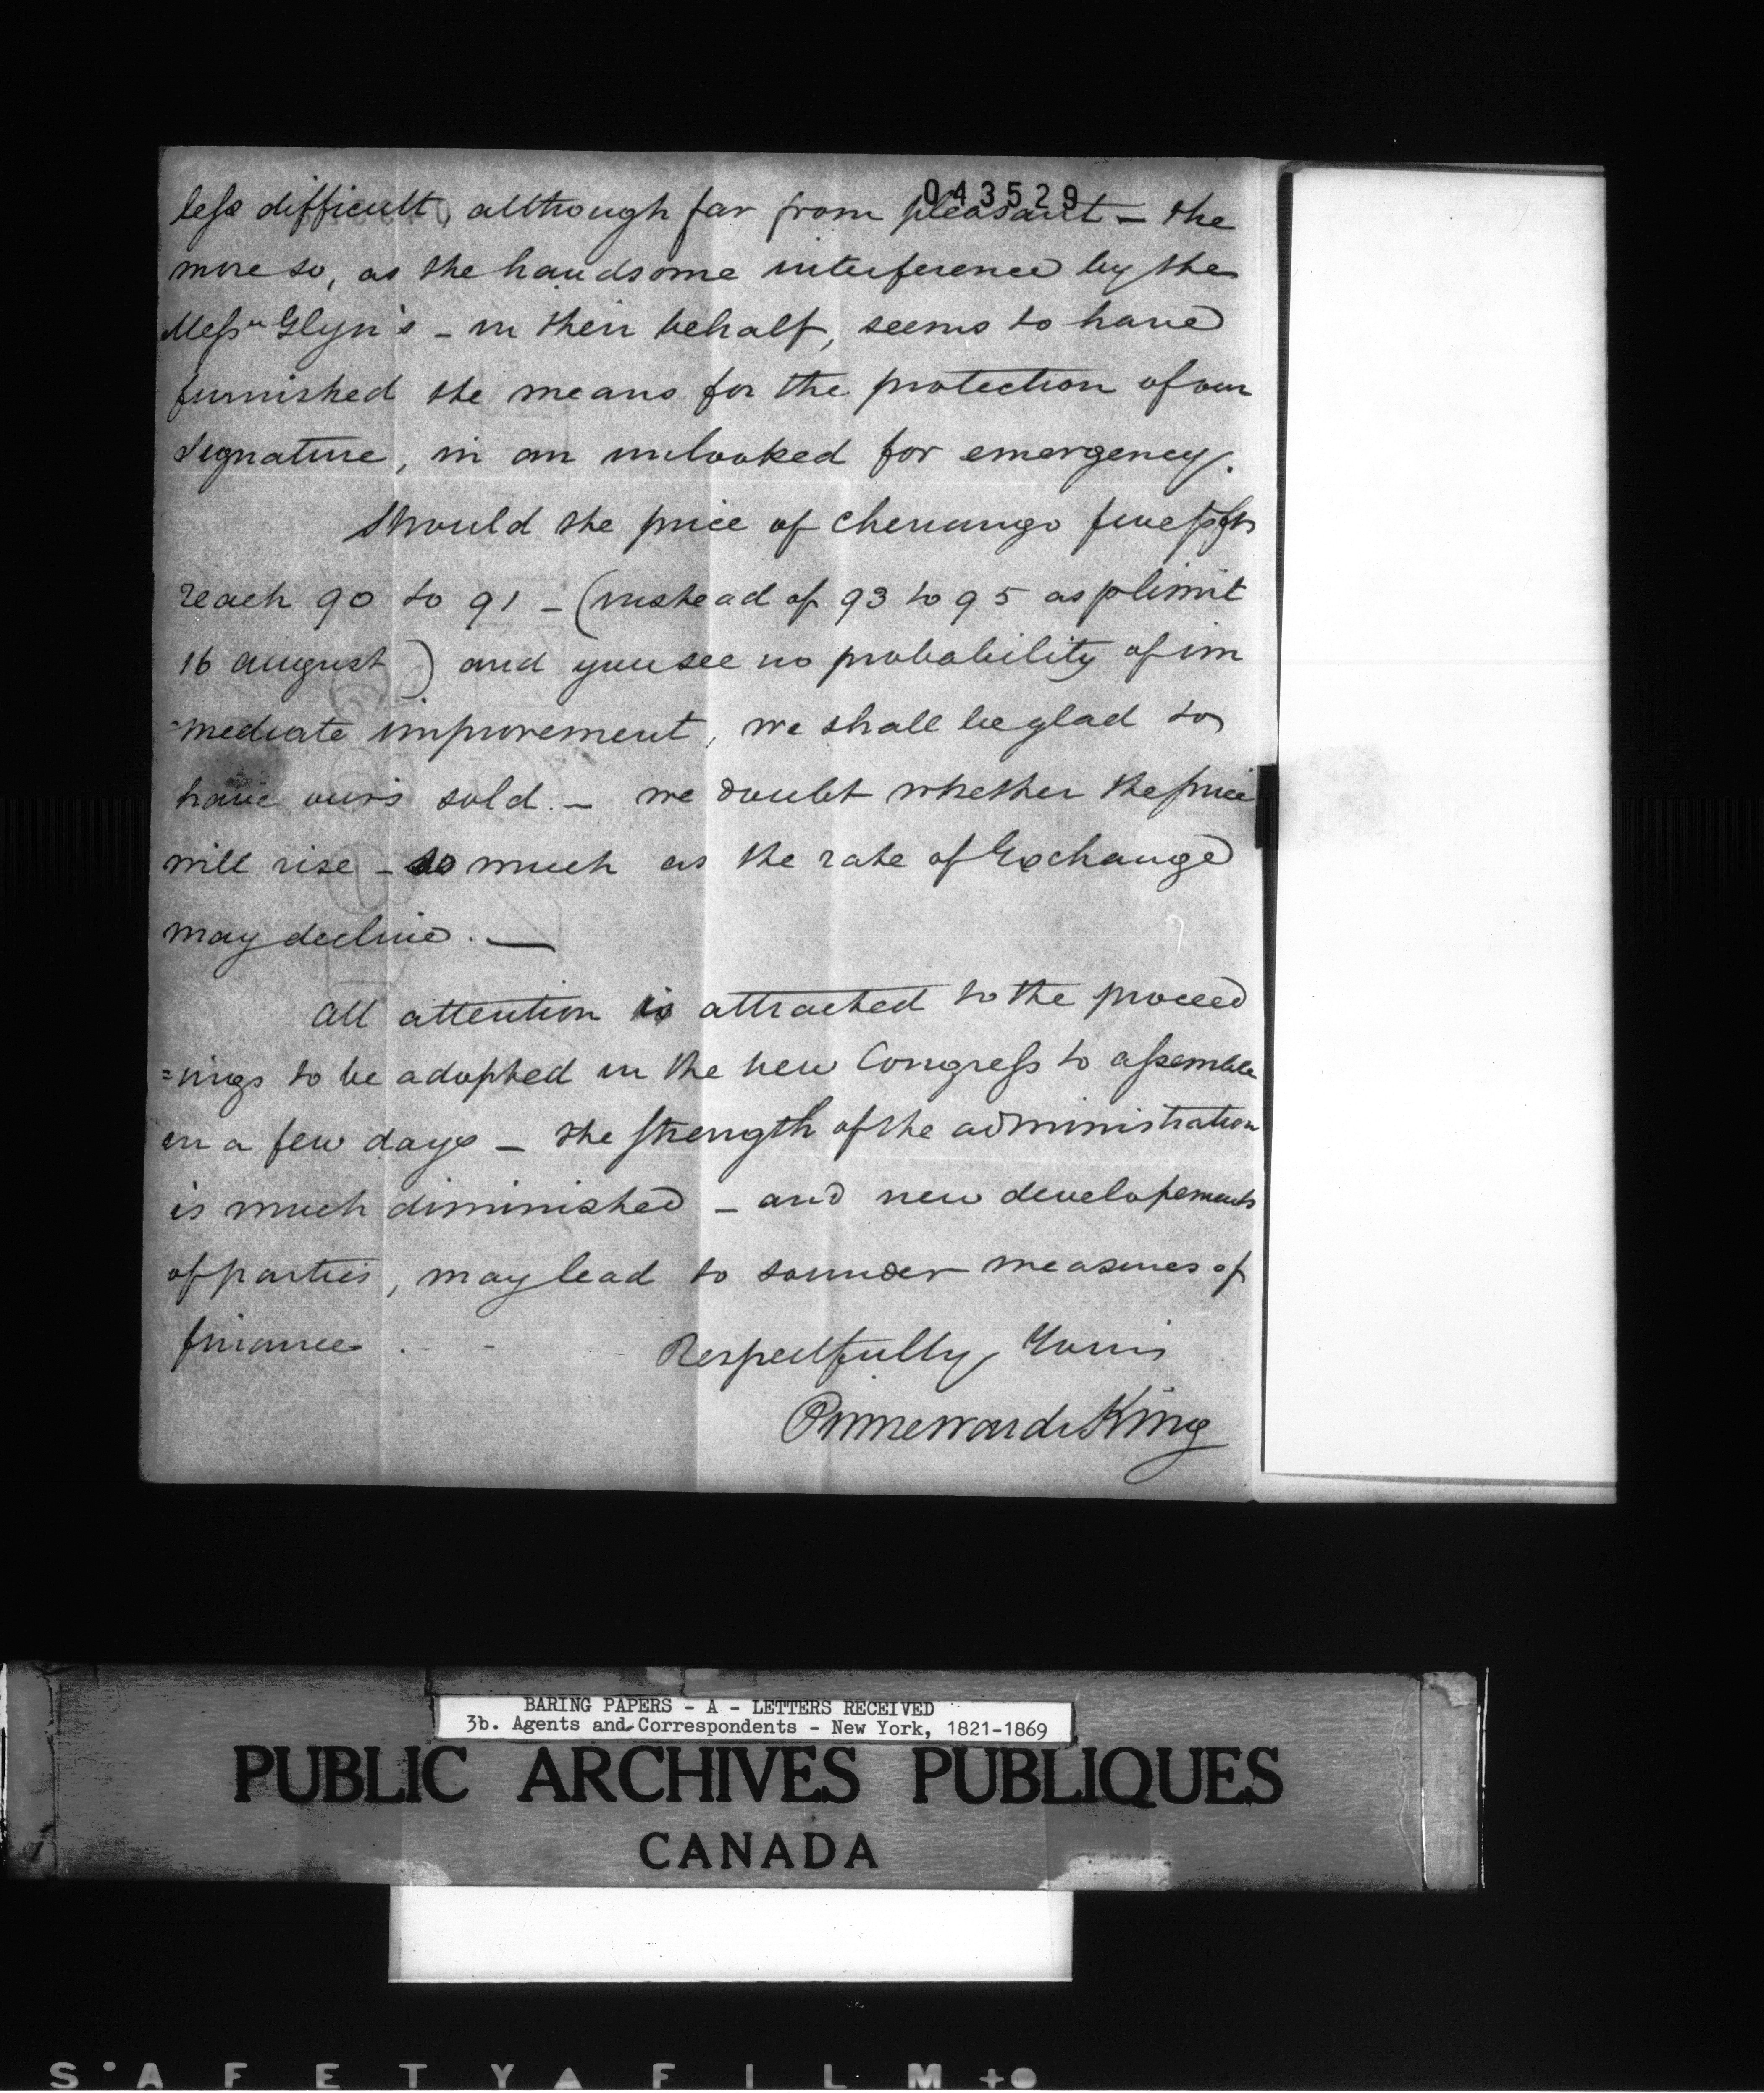 043529
less difficult, although far from pleasant – the
more so, as the handsome interference by the
Messrs Glyn's – in their behalf, seems to have
furnished the means for the protection of our
signature, in an unlooked for emergency.
Should the price of Chenango five
reach 90 to 91 – (instead of 93 to 95 as p limit
16 august) and you see no probability of im
=mediate improvement, we shall be glad to
have ours sold. – we doubt whether the price
will rise – so much as the rate of Exchange
may decline. —
All attention is attracted to the proceed
=ings to be adopted in the new Congress to assemble
in a few days – the strength of the administration
is much diminished – and new developements
of parties, may lead to sounder measures of
finance.
Respectfully Yours
Prime Ward & King
BARING PAPERS - A - LETTERS RECEIVED
3b. Agents and Correspondents - New York, 1821-1869
PUBLIC ARCHIVES PUBLIQUES
CANADA
SAFETY FILM